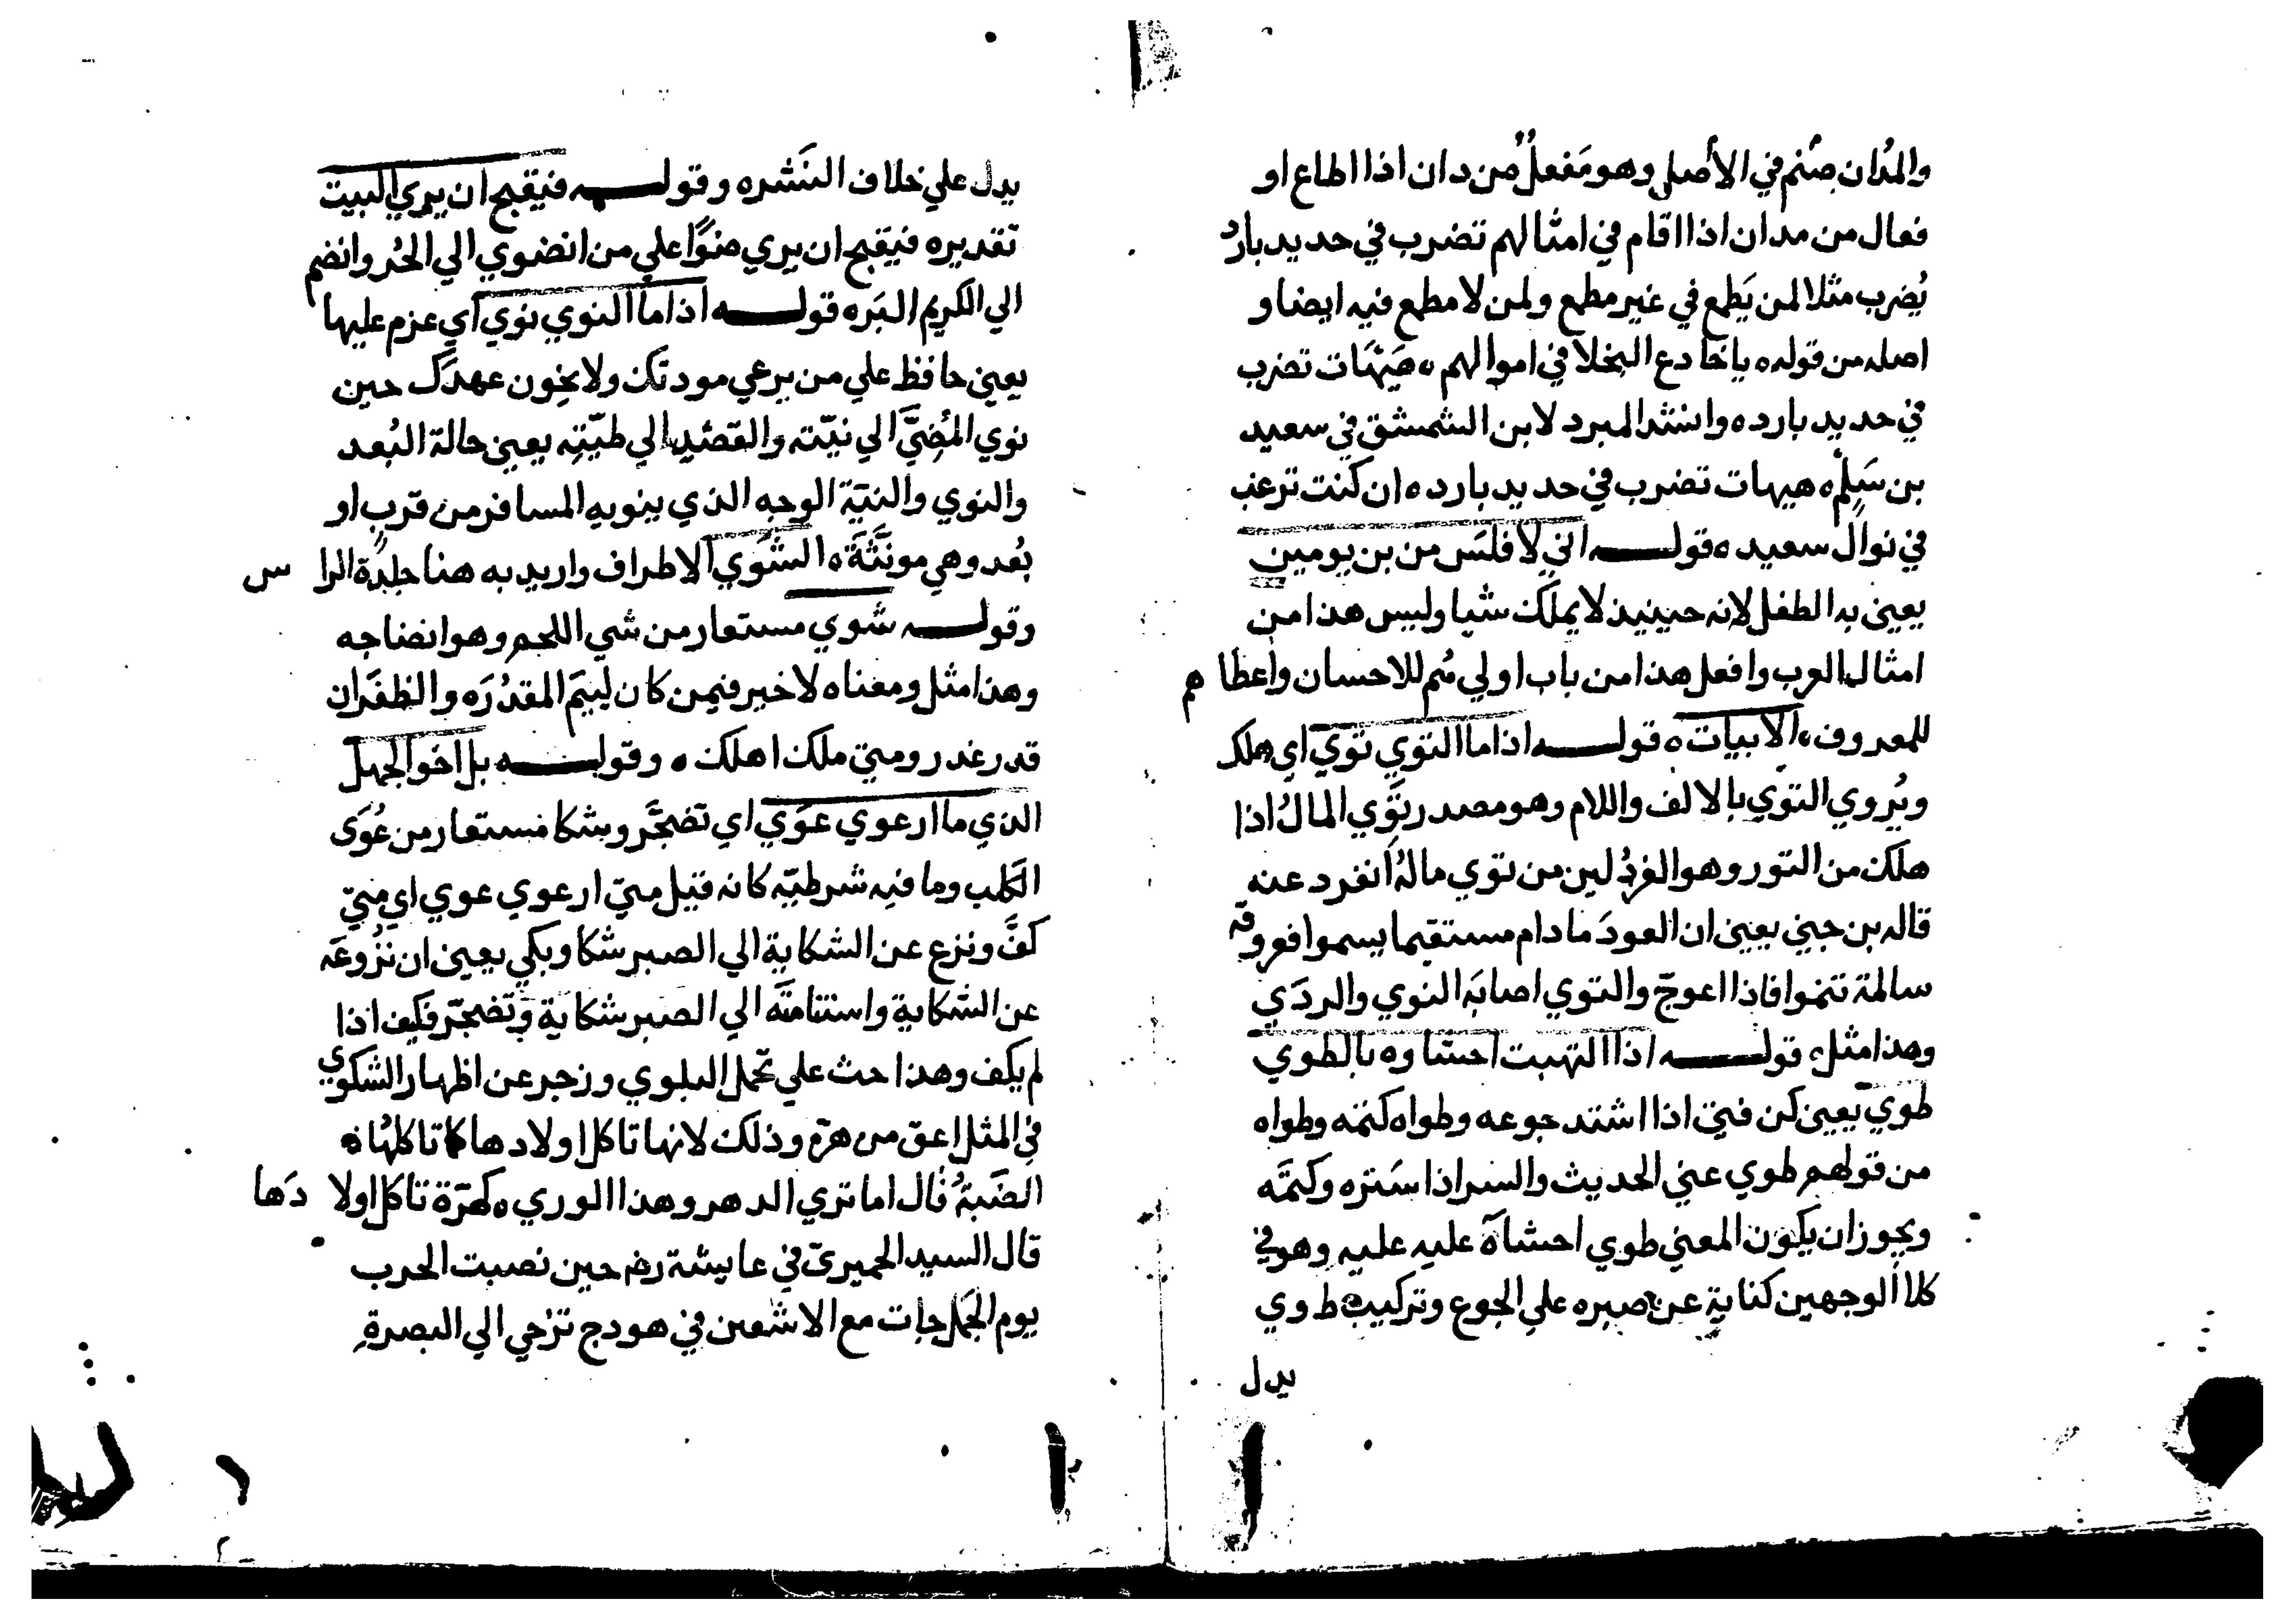 والمَدان صنم في الأصل وهو مَفعلٌ من دان اذا اطاع او
فعال من مدان اذا اقام في امثالهم تضرب في حديد بارد
يُضرب مثلا لمن يَطمع في غير مطمع ولمن لا مطمع فيه ايضا و
اصله من قوله ه يا خادع البخلا في اموالهم ه هَيْهَات تضرب
في حديد بارد ه وانشد المبرد لابن الشمشق في سعيد
بن سَلِم ه هيهات تضرب في حديد بارد ه ان كنت ترغب
في نوال سعيد ه قولـــه اني لافلَس من بن يومين
يعني به الطفل لانه حينيذ لا يملك شيا وليس هذا من
امثال العرب وافعل هذا من باب اولي مُم للاحسان واعطاهم
للمعروف ه الابيات ه قولـــه اذا ما التوي تَوي اي هلك
ويُروي التوَي بالالف واللام وهو مصدر تَوِي المالُ اذا
هلك من التو وهو الفردُ لين من توي مالهُ انفرد عنه
قاله بن جني يعني ان العودَ ما دام مستقيما يسموا فعروقه
سالمة تنموا فاذا اعوجّ والتوي اصابَه التوي والردَي
وهذا مثل ه قولـــه اذا التهبت احشاوه بالطوي
طوي يعني كن فتي اذا اشتد جوعه وطواه كتمه وطواه
من قولهم طوي عني الحديث والسر اذا سَتره وكتمَه
ويجوز ان يكون المعني طوي احشاهُ عليه عليه وهو في
كلا الوجهين كناية عن صبره علي الجوع وتركيب ط و ي
يدل
يدل علي خلاف النَشر ه وقولـــه فيقبح ان يري البيت
تقديره فيقبح ان يري ضَوًا علي من انضوي الي الحُر وانضم
الي الكريم البَره قولـــه اذا ما النوي نوي اي عزم عليها
يعني حافظ علي من يرعي مودتك ولا يخون عهدَك حين
نوي المُضِيَّ الي نيّته والقصدَ الي طيّتِه يعني حالة البُعد
والنوي والنيّة الوجه الذي ينويهِ المسافر من قربٍ او
بُعد وهي مونثة ه الشَوي الاطراف واريد به هنا جلدة الراس
وقولـــه شَوي مستعار من شي اللحم وهو انضاجه
وهذا مثل ومعناه لا خير فيمن كان ليَم المقدُرَه والظفَر ان
قدر غدر ومتي ملك اهلك ه وقولـــه بل اخو الجهل
الذي ما ارعوي عوَي اي تضجَّر وشكا مستعار من عُوَي
الكلب وما فيه شرطيّه كانه قيل متي ارعوي عوي اي متي
كفَّ ونزع عن الشكاية الي الصبر شكا وبكي يعني ان نُزُوعَه
عن الشكاية واستنامتَه الي الصبر شكاية وتضجّر فكيف اذا
لم يكف وهذا حث علي تحمل البلوي وزجر عن اظهار الشكوي
في المثل اعق من هرّه وذلك لانها تاكل اولادها كما تاكلها ه
الضَبةُ قال اما تري الدهر وهذا الوري ه كهرّة تاكل اولادَها
قال السيد الحميريّ في عايشة رضـ حين نصبت الحرب
يوم الجَمل جات مع الاشعين في هودج تزجي الي البصرةِ